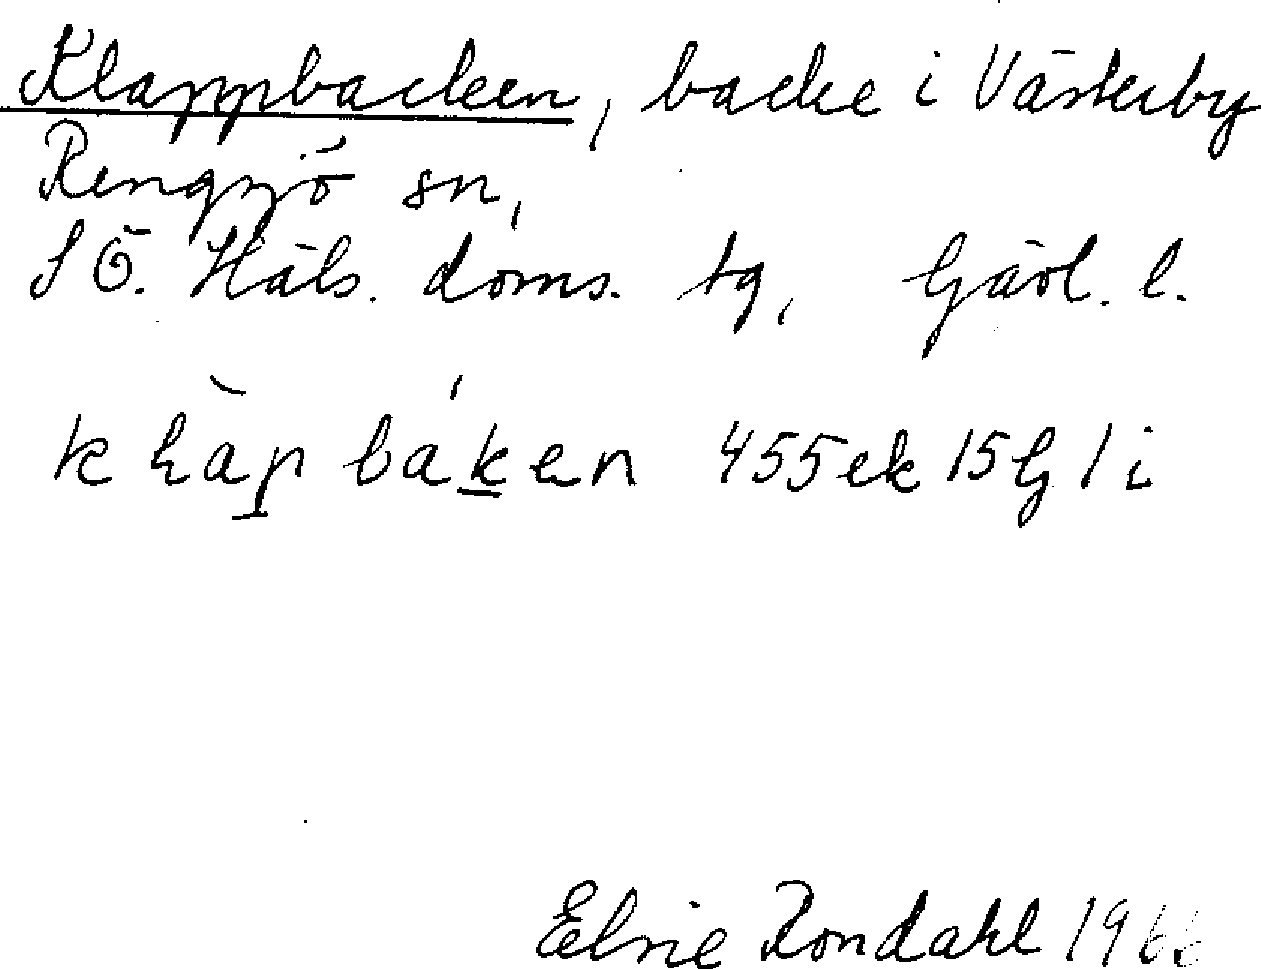 Klappbacken, backe i Västerby
Rengsjö sn,
SÖ. Häls. doms. tg, Gävl. l.
k làp báken 455ek15G1i
Elsie Rondahl 1966